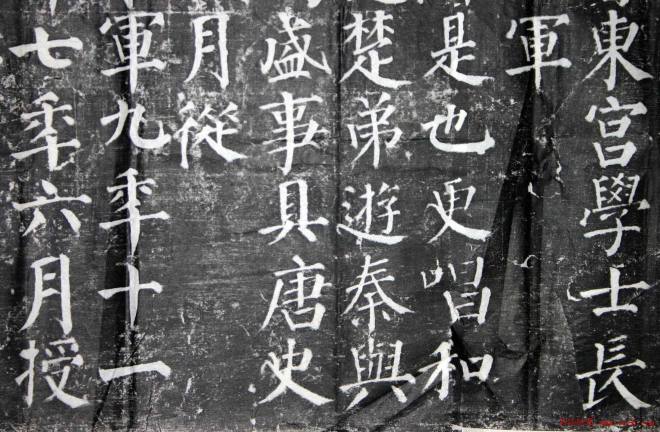 東宮學士長
軍
是也更唱和
楚弟遊秦與
盛事具唐史
月從
軍九年十一
七秊六月授